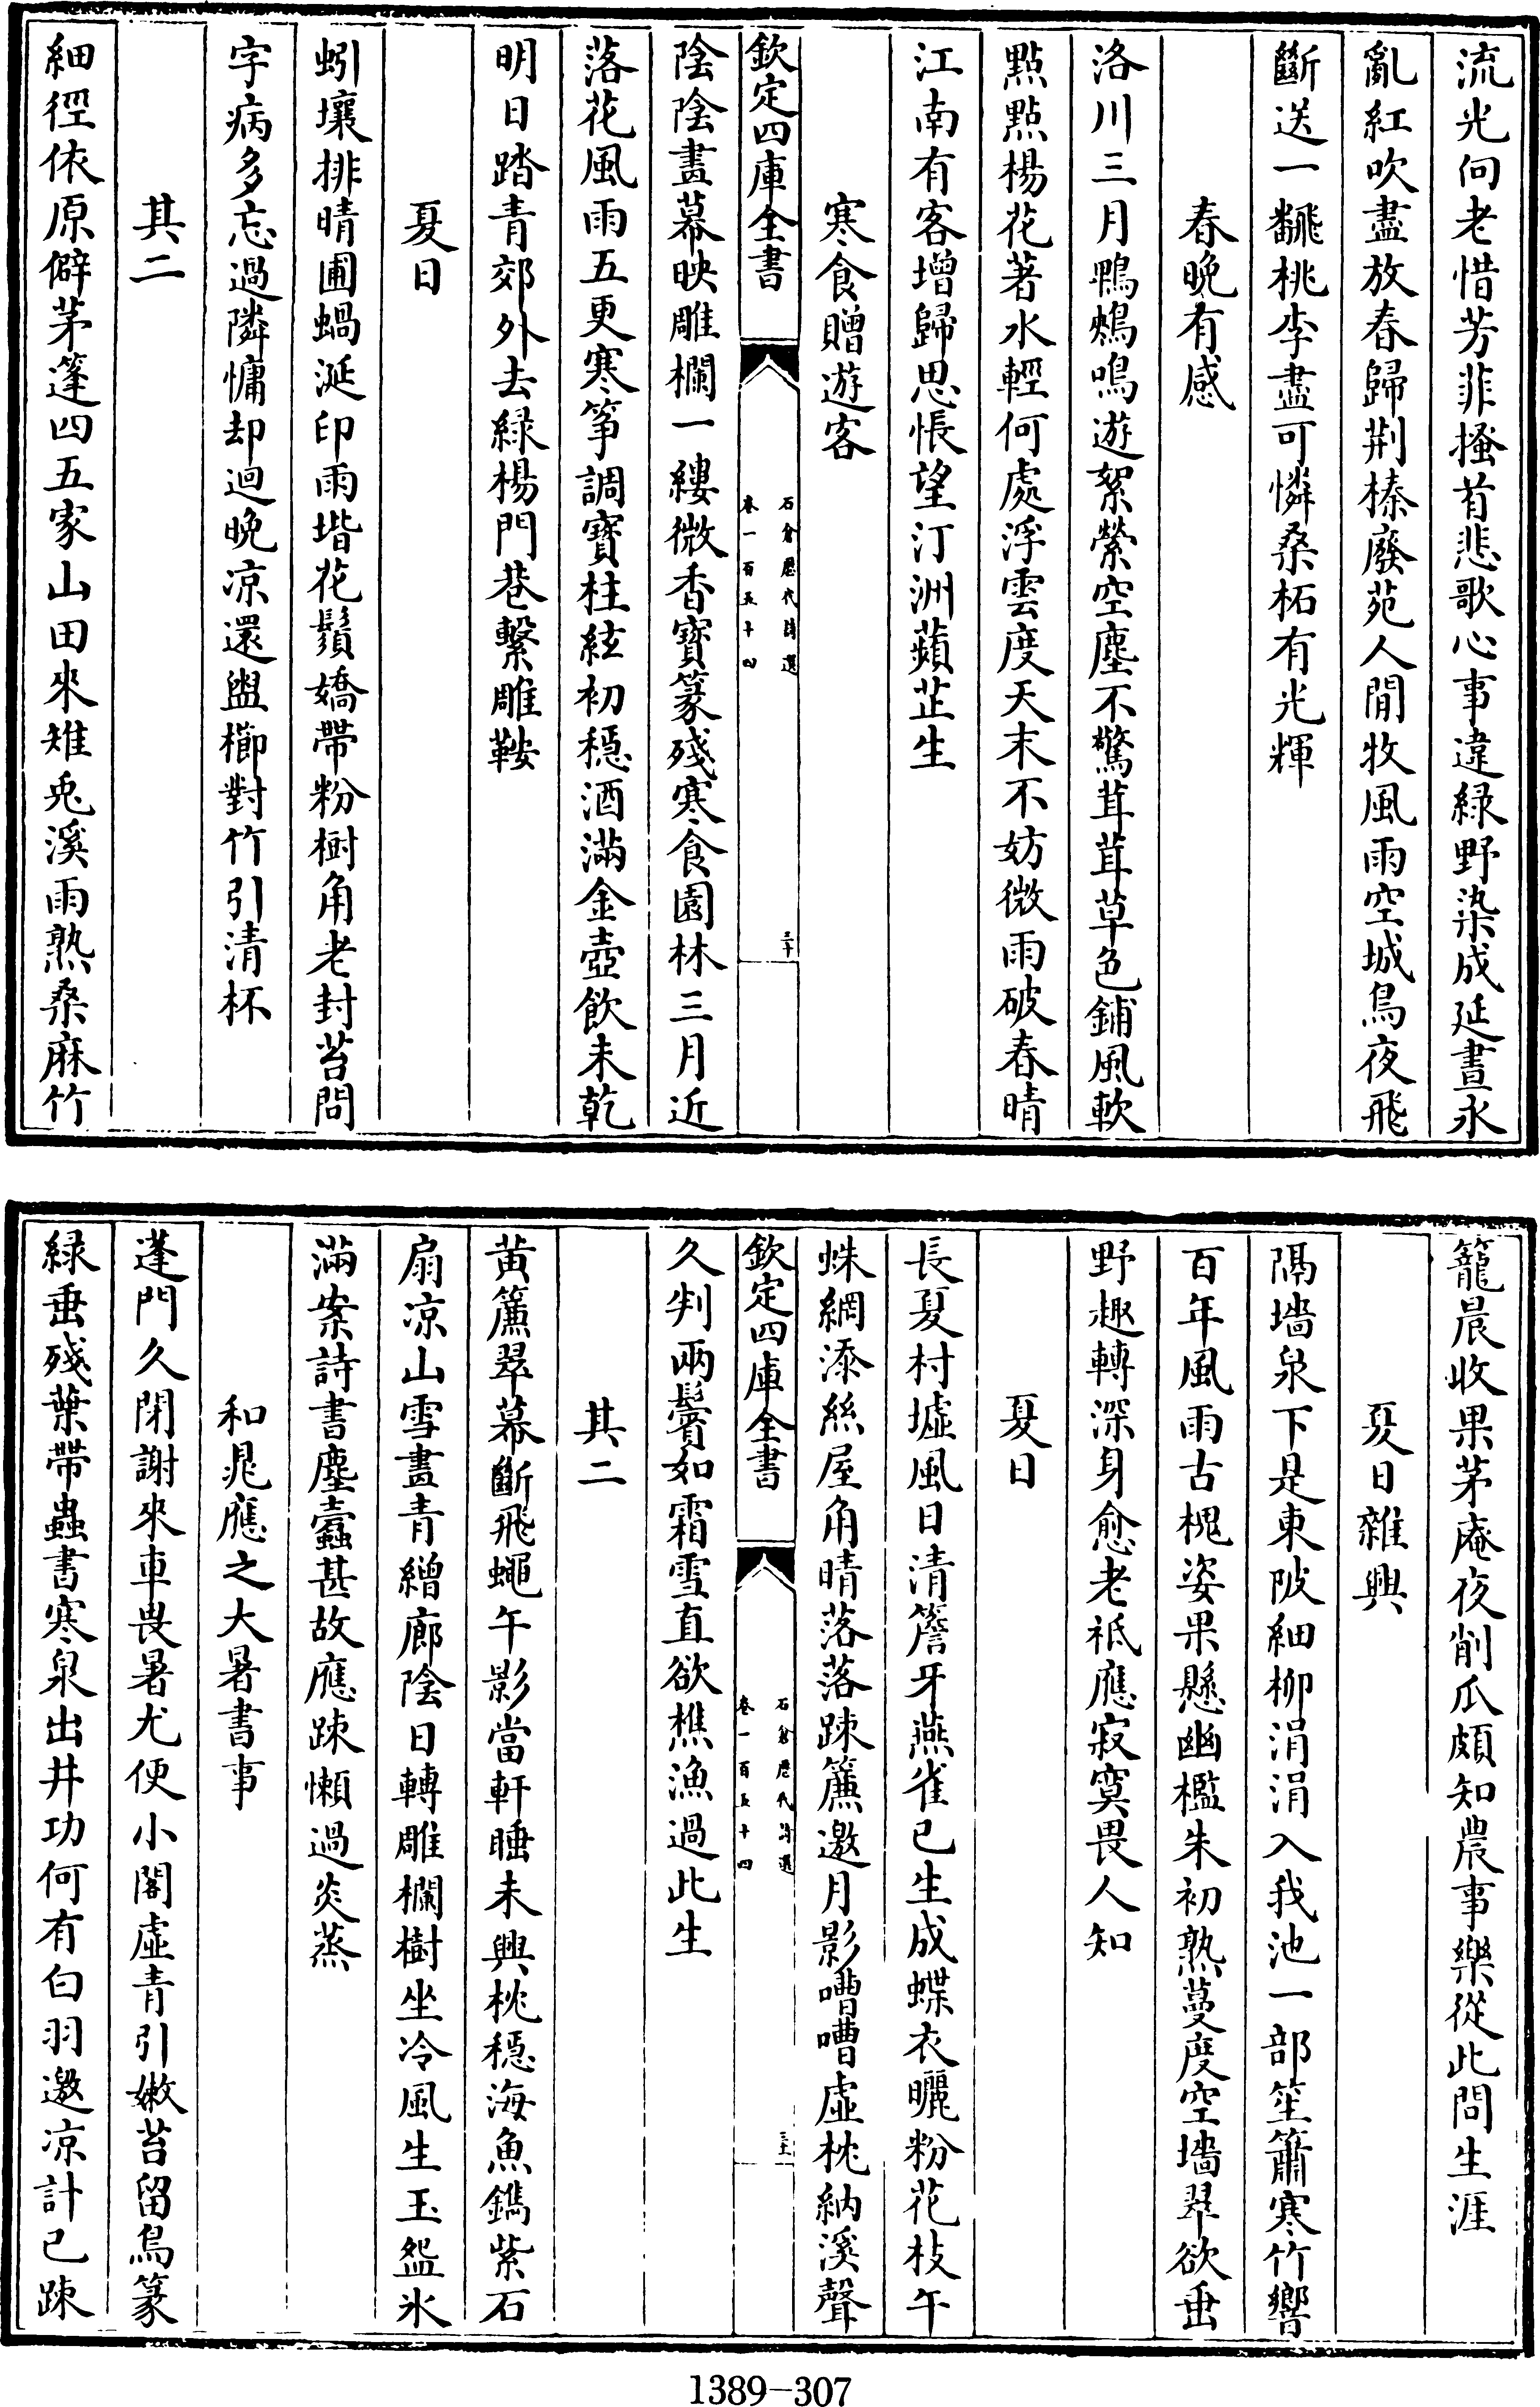 流光向老惜芳菲搔首悲歌心事違緑野染成延晝永
亂紅吹盡放春歸荆榛廢苑人閒牧風雨空城鳥夜飛
斷送一飜桃李盡可憐桑柘有光輝
春晚有感
洛川三月鴨鵊鳴遊絮縈空塵不驚茸茸草色鋪風軟
點點楊花著水輕何處浮雲度天末不妨微雨破春晴
江南有客增歸思悵望汀洲蘋芷生
寒食贈遊客
欽定四庫全書
石倉歷代詩選
卷一百五十四
三十
陰陰畫幕映雕欄一縷微香寶篆殘寒食園林三月近
落花風雨五更寒筝調寶柱絃初穩酒滿金壺飲未乾
明日踏青郊外去緑楊門巷繫雕鞍
夏日
蚓壤排晴圃蝸涎印雨堦花鬚嬌帶粉樹角老封苔問
字病多忘過隣慵却迴晚凉還盥櫛對竹引清杯
其二
細徑依原僻茅篷四五家山田來雉兎溪雨熟桑麻竹
籠晨收果茅庵夜削瓜頗知農事樂從此問生涯
夏日雜興
隔墻泉下是東陂細柳涓涓入我池一部笙簫寒竹響
百年風雨古槐姿果懸幽檻朱初熟蔓度空墻翠欲垂
野趣轉深身愈老祗應寂寞畏人知
夏日
長夏村墟風日清簷牙燕雀已生成蝶衣曬粉花枝午
蛛網添絲屋角晴落落踈簾邀月影嘈嘈虛枕納溪聲
欽定四庫全書
石倉歷代詩選
卷一百五十四
三十一
久判兩鬢如霜雪直欲樵漁過此生
其二
黄簾翠幕斷飛蠅午影當軒睡未興枕穩海魚鐫紫石
扇凉山雪畫青繒廊陰日轉雕欄樹坐冷風生玉盌氷
滿案詩書塵蠹甚故應踈懶過炎蒸
和晁應之大暑書事
蓬門久閉謝來車畏暑尤便小閣虛青引嫩苔留鳥篆
緑垂殘葉帶蟲書寒泉出井功何有白羽邀凉計已踈
1389-307